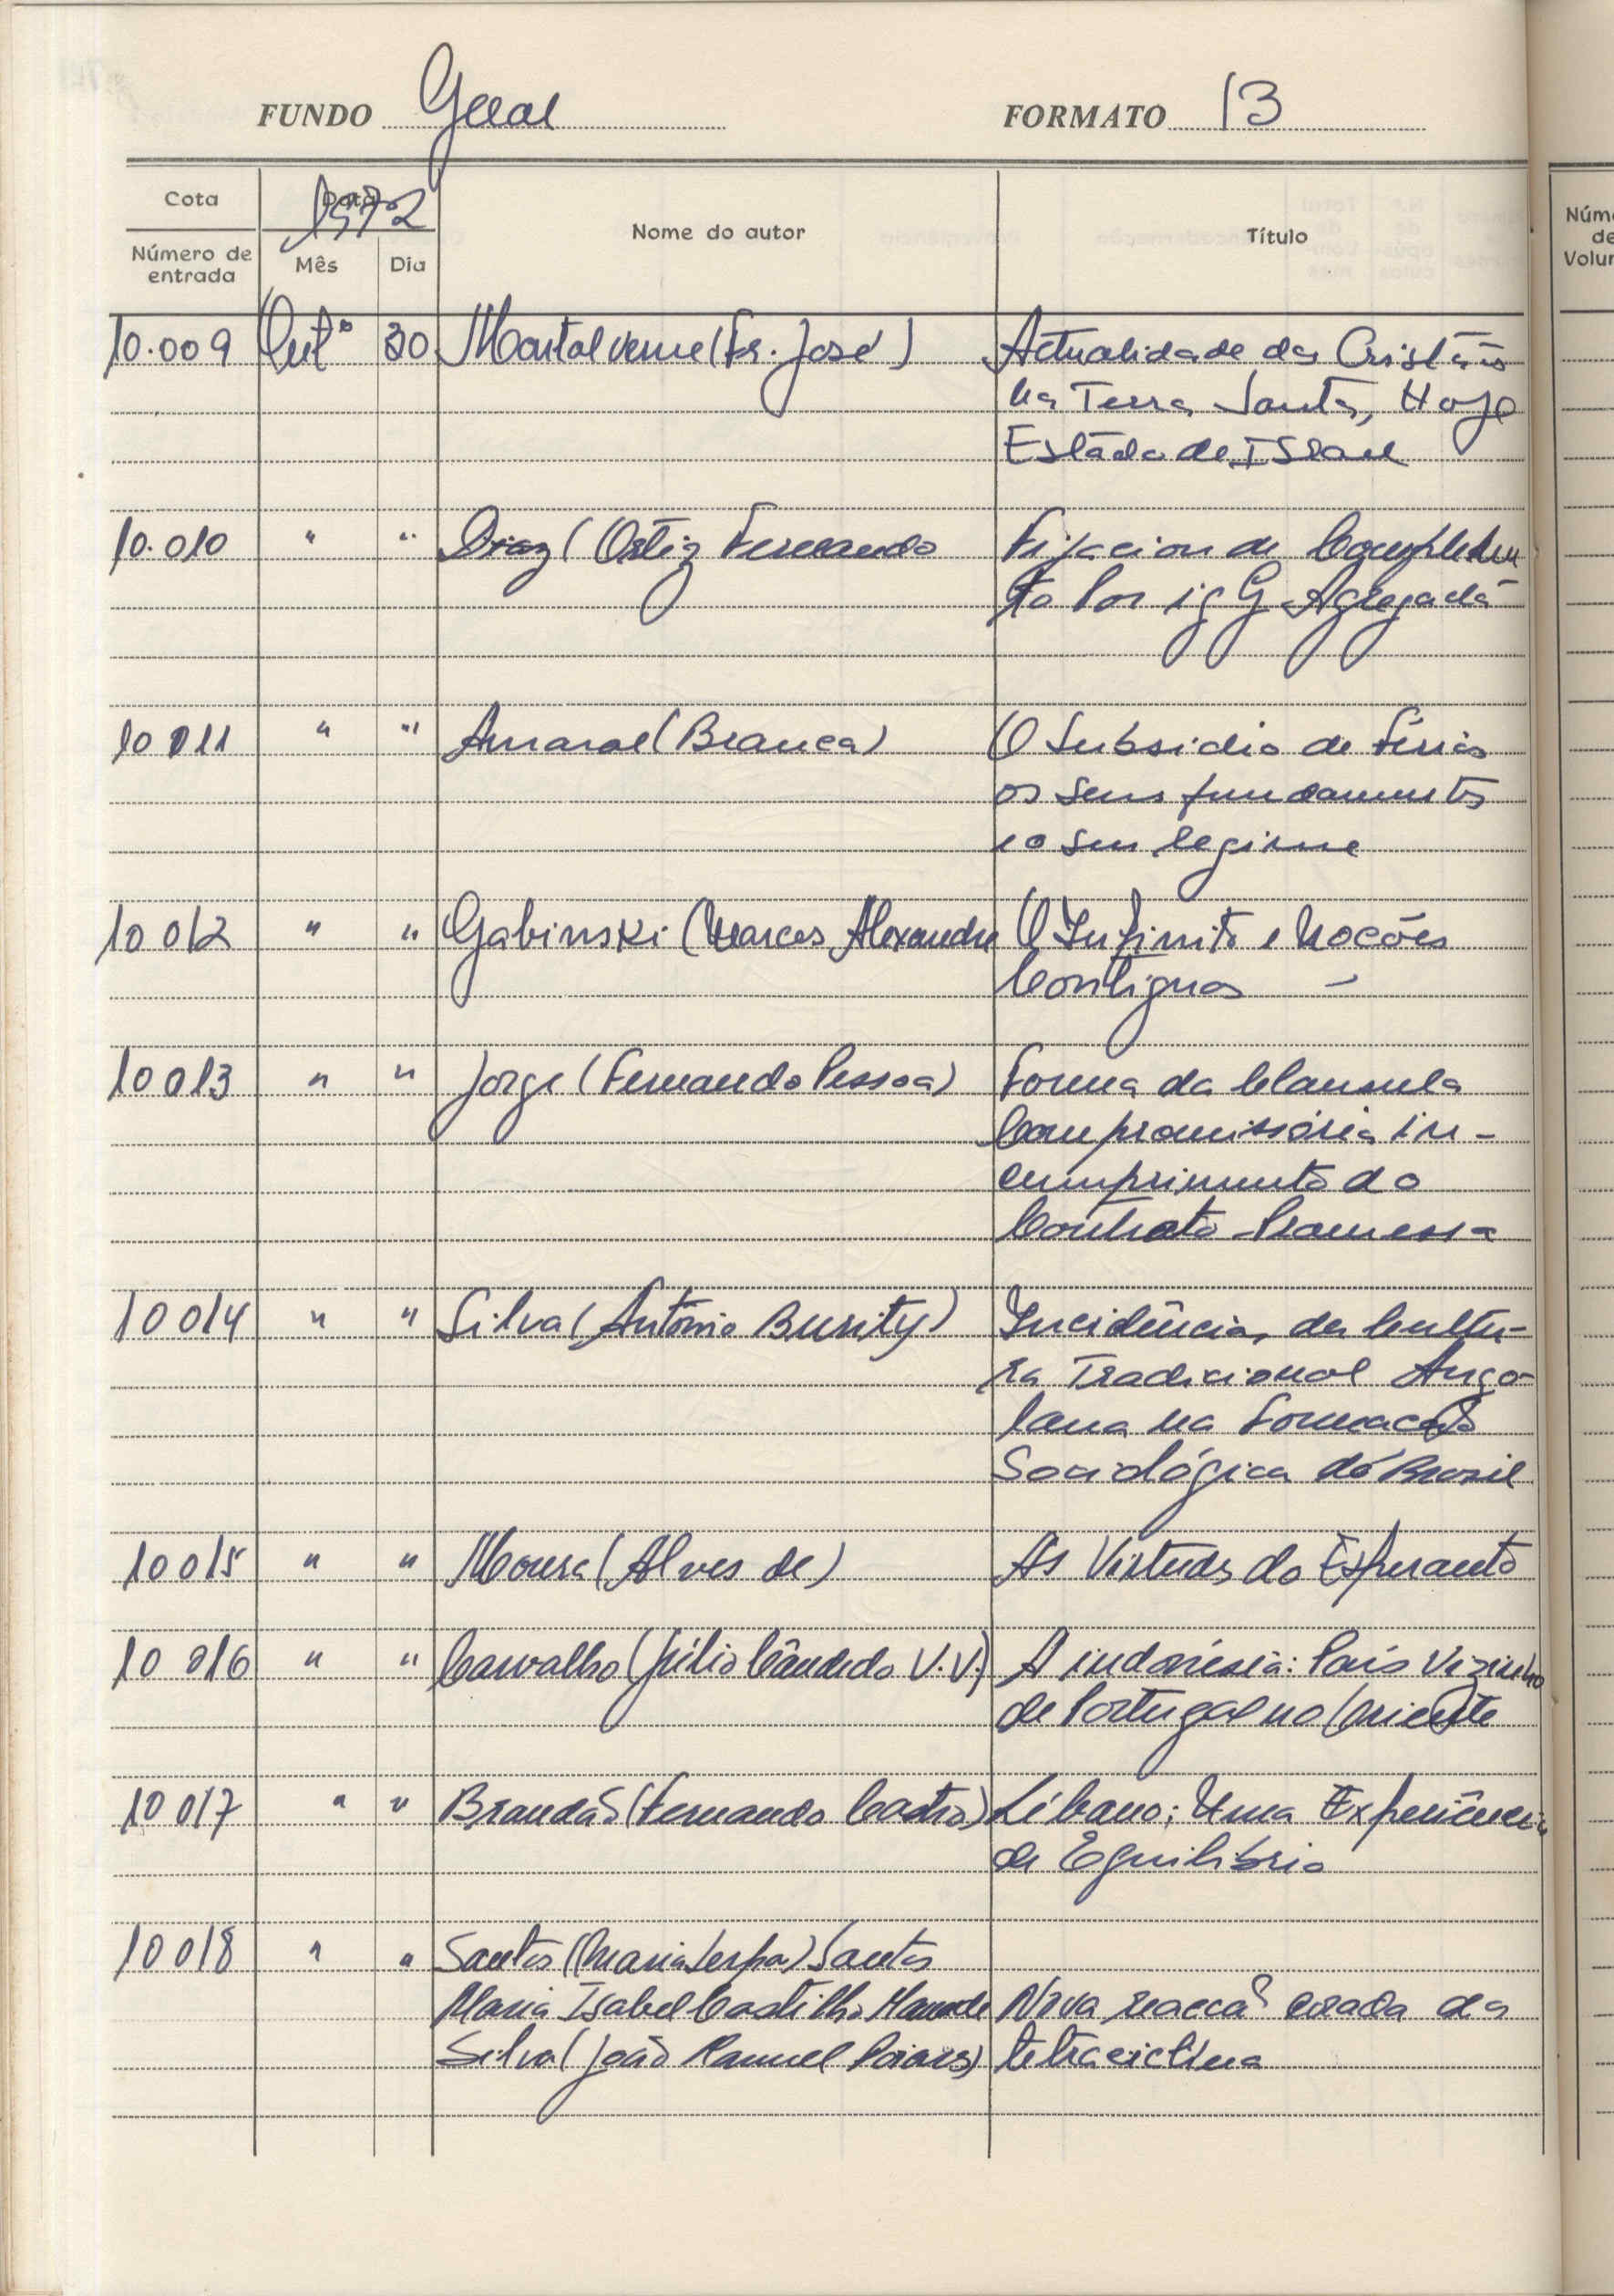 FUNDO Geral FORMATO 13
Cota Data 1972 Nome do autor Título Núme
Número de entrada Mês Dia de
Volum
10.009 Outº 30 Montalverne (Fr. José) Actualidade dos Cristãos
na Terra Santa, Hoje
Estado de Israel
10.010 " " Diaz (Ortiz Fernando Fijacion de Complemen
to Por ig G Agregada
10011 " " Amaral (Branca) O Subsidio de Férias
os seus fundamentos
e o seu regime
10012 " " Gabinski (Marcos Alexandre O Infinito e Noções
Contiguas -
10013 " " Jorge (Fernando Pessoa) Forma da Clausula
Compromissória in-
cumprimento do
Contrato Promessa
10014 " " Silva (António Burity) Incidência da Cultu-
ra Tradicional Ango-
lana na Formação
Sociológica do Brasil
10015 " " Moura (Alves de) As Virtudes do Esperanto
10016 " " Carvalho (Júlio Cândido V.V.) A indonésia: País Vizinho
de Portugal no Oriente
10017 " " Brandão (Fernando Castro) Líbano: Uma Experiência
de Equilibrio
10018 " " Santos (Maria Serpa) Santos
Maria Isabel Castilho Nova reacção corada da
Silva (João Manuel Poiares) tetraciclina